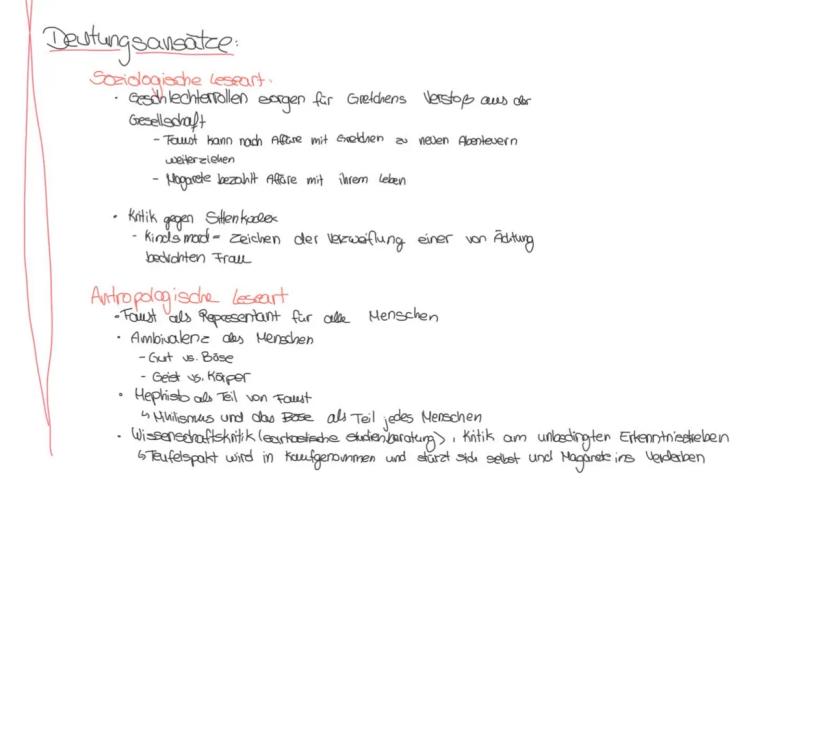 Deutungsansätze:
Soziologische Leseart:
· Geschlechterrollen sorgen für Gretchens Verstoß aus der
Gesellschaft
- Faust kann nach Affäre mit Gretchen zu neuen Abenteuern
weiterziehen
- Magarete bezahlt Affäre mit ihrem Leben
· Kritik gegen Sittenkodex
- Kindsmord = Zeichen der Verzweiflung einer von Ächtung
bedrohten Frau
Antropologische Leseart
· Faust als Representant für alle Menschen
· Ambivalenz des Menschen
- Gut vs. Böse
- Geist vs. Körper
· Mephisto als Teil von Faust
↳ Nihilismus und das Böse als Teil jedes Menschen
· Wissenschaftskritik (sarkastische Studienberatung), Kritik am unbedingten Erkenntnisstreben
↳ Teufelspakt wird in Kaufgenommen und stürzt sich selbst und Magarete ins Verderben